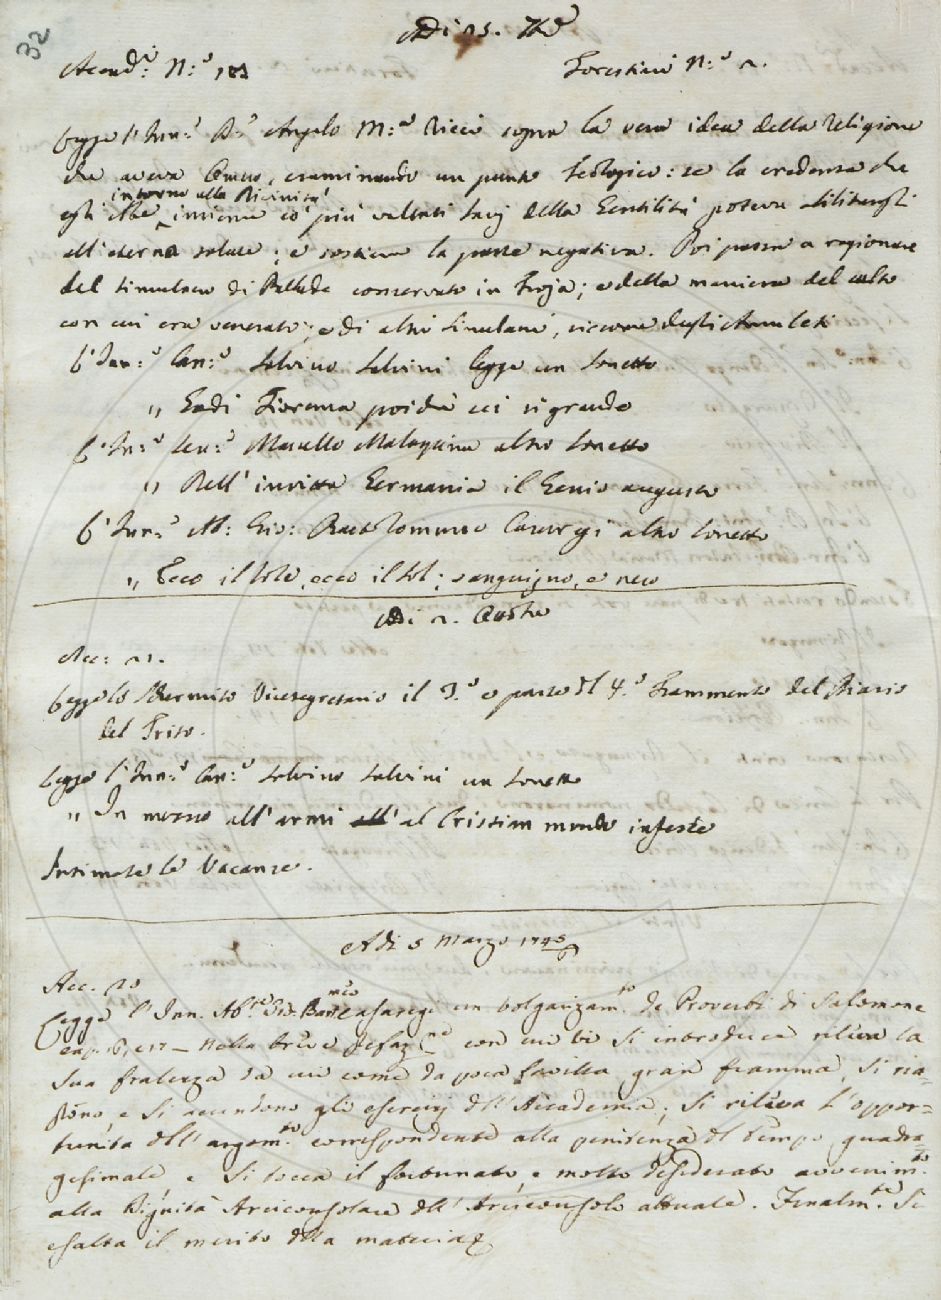 32
Adi 25. 7bre
Accad.i N.o 183 Forestieri N.o 2.
Legge l'Inn.o D.r Angelo M.a Ricci sopra la vera idea della Religione
che aveva Omero, esaminando un punto teologico: se la credenza che
intorno alla Divinità
egli ebbe insieme co' più saggi della Gentilità poteva abilitargli
all'eterna salute; e sostiene la parte negativa. Poi passa a ragionare
del simulacro di Pallade conservato in Troja; e della maniera del culto
con cui era venerato; e di altri simulacri, siccome degli Amuleti
L'Inn.o Can.o Salvino Salvini legge un Sonetto
„ Godi Fiorenza poichè sei sì grande
L'Inn.o Marcello Malaspina altro Sonetto
„ Dell' invitta Germania il Genio augusto
L'Inn.o Ab: Gio: Bartolommeo Casaregi altro Sonetto
„ Ecco il sole, ecco il sol; sanguigno, e nero
Adi 2. Ottobre
Acc: 21.
Legge lo Schermito Vicesegretario il 3.o e parte del 4.o Frammento del Diario
del Trito.
Legge l'Inn.o Can.o Salvino Salvini un Sonetto
„ In mezzo all'armi all' al Cristian mondo infeste
Intimate le Vacanze.
Adi 5 Marzo 1745
Acc. 20
Legge l'Inn. Ab.e Gio: Bart.meo Casaregi un volgarizam.to de Proverbi di Salomone
cap. e 17 — Nella breve Prefaz.ne con cui vi si introduce rileva la
sua fralezza da cui come da poca favilla gran fiamma, si ria-
ssumono e si accendono gli esercizj dell'Accademia; si rileva l'oppor-
tunità dell'argom.to corrispondente alla penitenza del tempo quadra-
gesimale, e si tocca il fortunato, e molto desiderato avvenim.to
alla Dignità Arciconsolare dell'Arciconsolo attuale. Finalm.te si
esalta il merito della materia